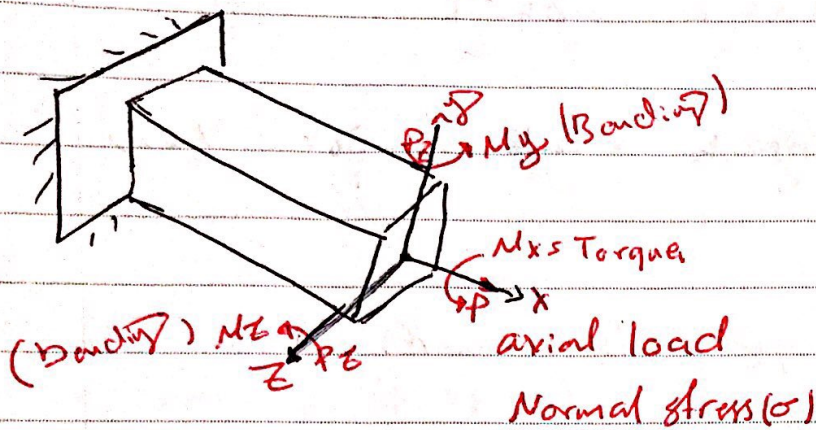 y
Pz My (Bending)
Mx = Torque
P x
(bending) Mz Pz
z
axial load
Normal stress (σ)